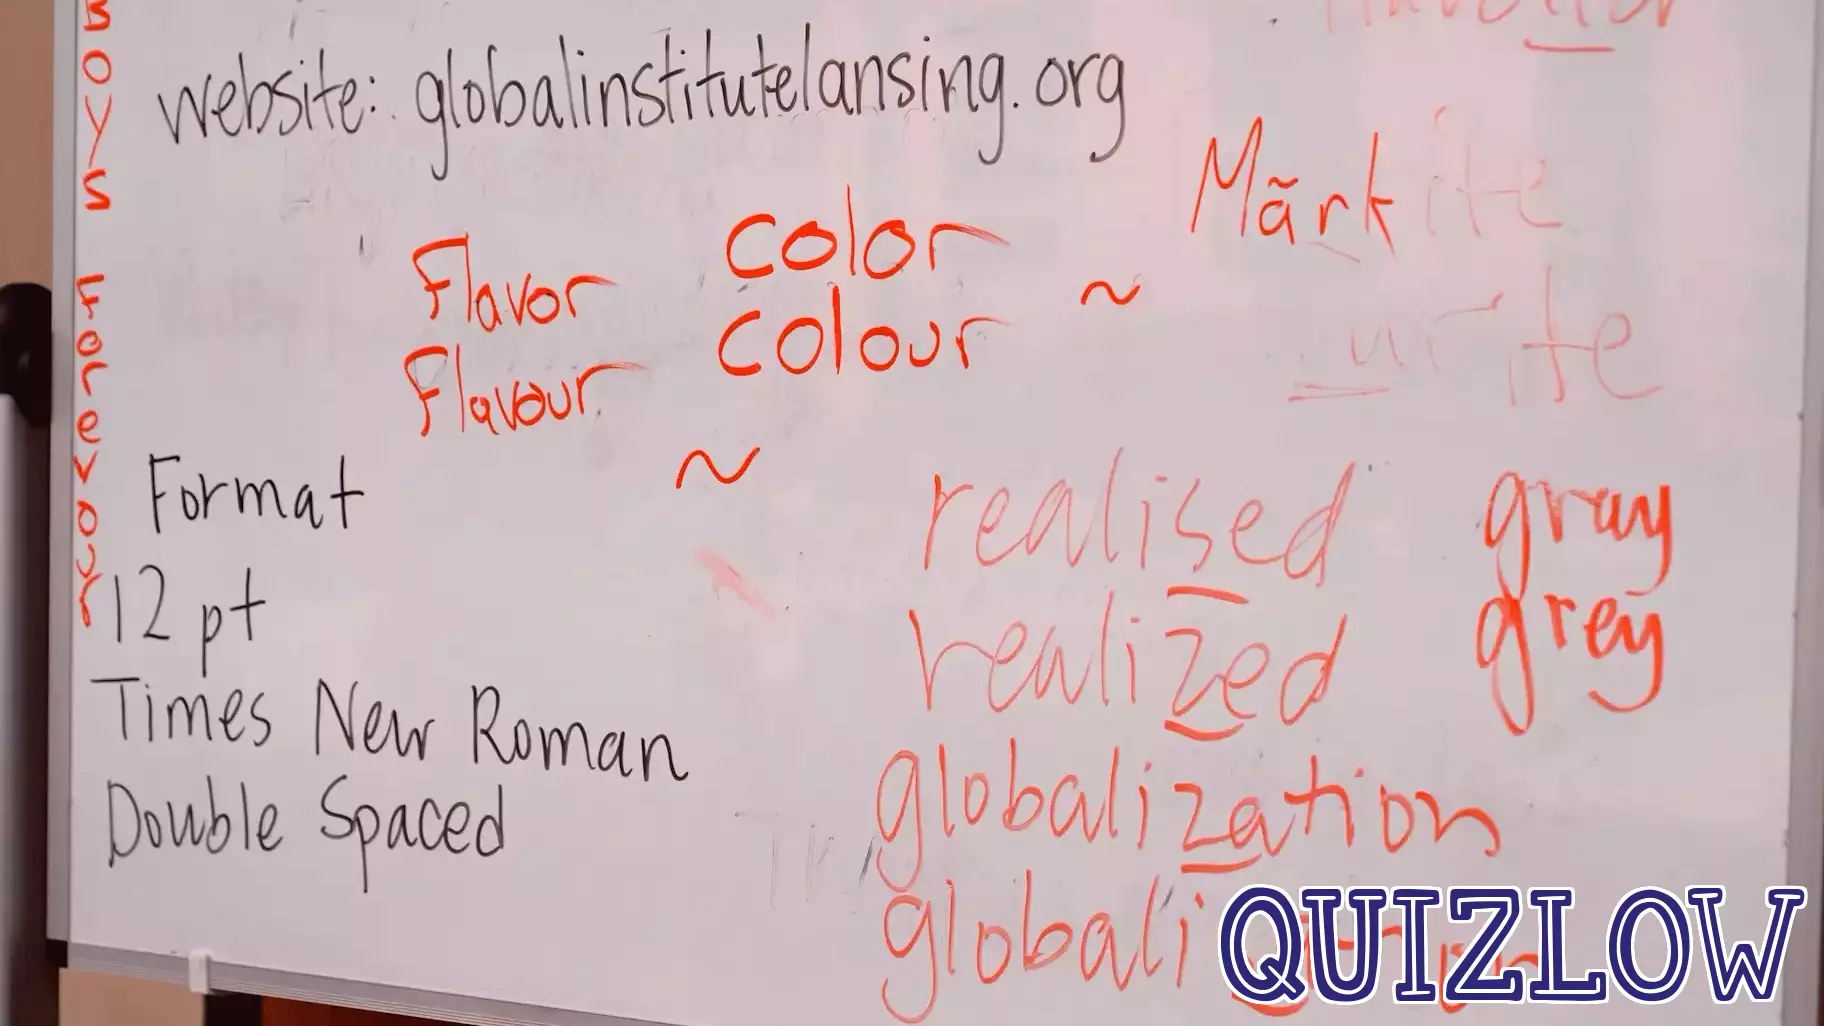 BOYS Forevour
website: globalinstitutelansing.org
Flavor
Flavour
color
colour
~
Mãrk
~
Format
12 pt
Times New Roman
Double Spaced
realised
realized
globalization
gray
grey
QUIZLOW